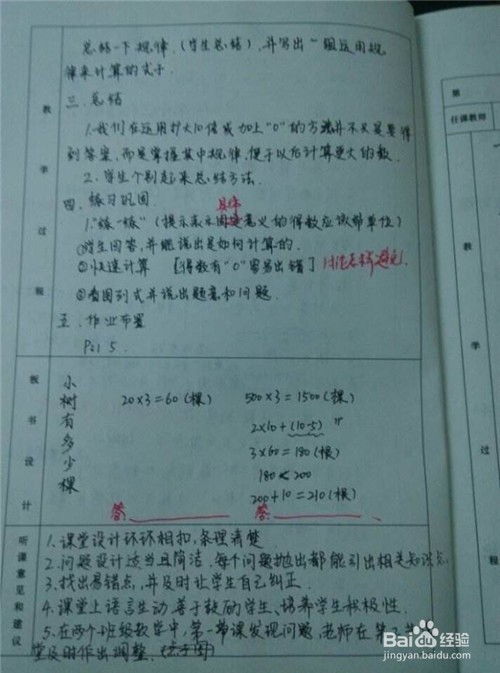 总结一下规律,(学生总结),并写出一组运用规
律来计算的式子.
三. 总结
1.我们在运用扩大10倍或加上"0"的方法并不只是要得
到答案,而是掌握其中规律,便于以后计算更大的数.
2.学生个别起来总结方法.
四. 练习巩固
具体
1."练一练"(提示表示意义的得数应该带单位)
①学生回答,并能说出是如何计算的.
②快速计算 [得数有"0"容易出错] 讨论怎样避免.
③看图列式并说出题意和问题.
五. 作业布置
P21 5.
教学过程
板书设计
小树有多少棵
20×3=60(棵) 500×3=1500(棵)
2×10+(10-5)
3×60=180(根)
180<200
200+10=210(根)
答: 答:
听课意见和建议
1.课堂设计环环相扣,条理清楚
2.问题设计适当且简洁,每个问题抛出都能引出相关知识点.
3.找出易错点,并及时让学生自己纠正.
4.课堂上语言生动善于鼓励学生、培养学生积极性.
5.在两个班级教学中,第一节课发现问题,老师在第2节
堂及时作出调整.
第
任课教师
教
学
过
程
Baidu经验
jingyan.baidu.com